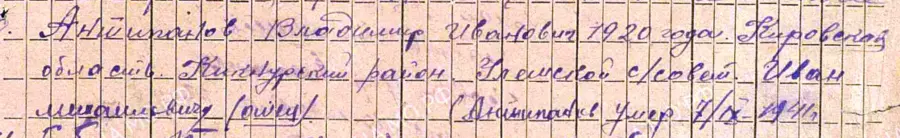 Антипанов Владимир Иванович 1920 года. Кировской
область. Кикнурский район. Улешской с/совет. Иван
Михайловичу (отец) (Антипанов умер 7/IX-1941г